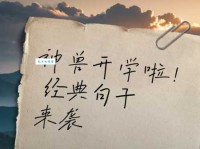 神兽开学啦!
经典句子
来袭